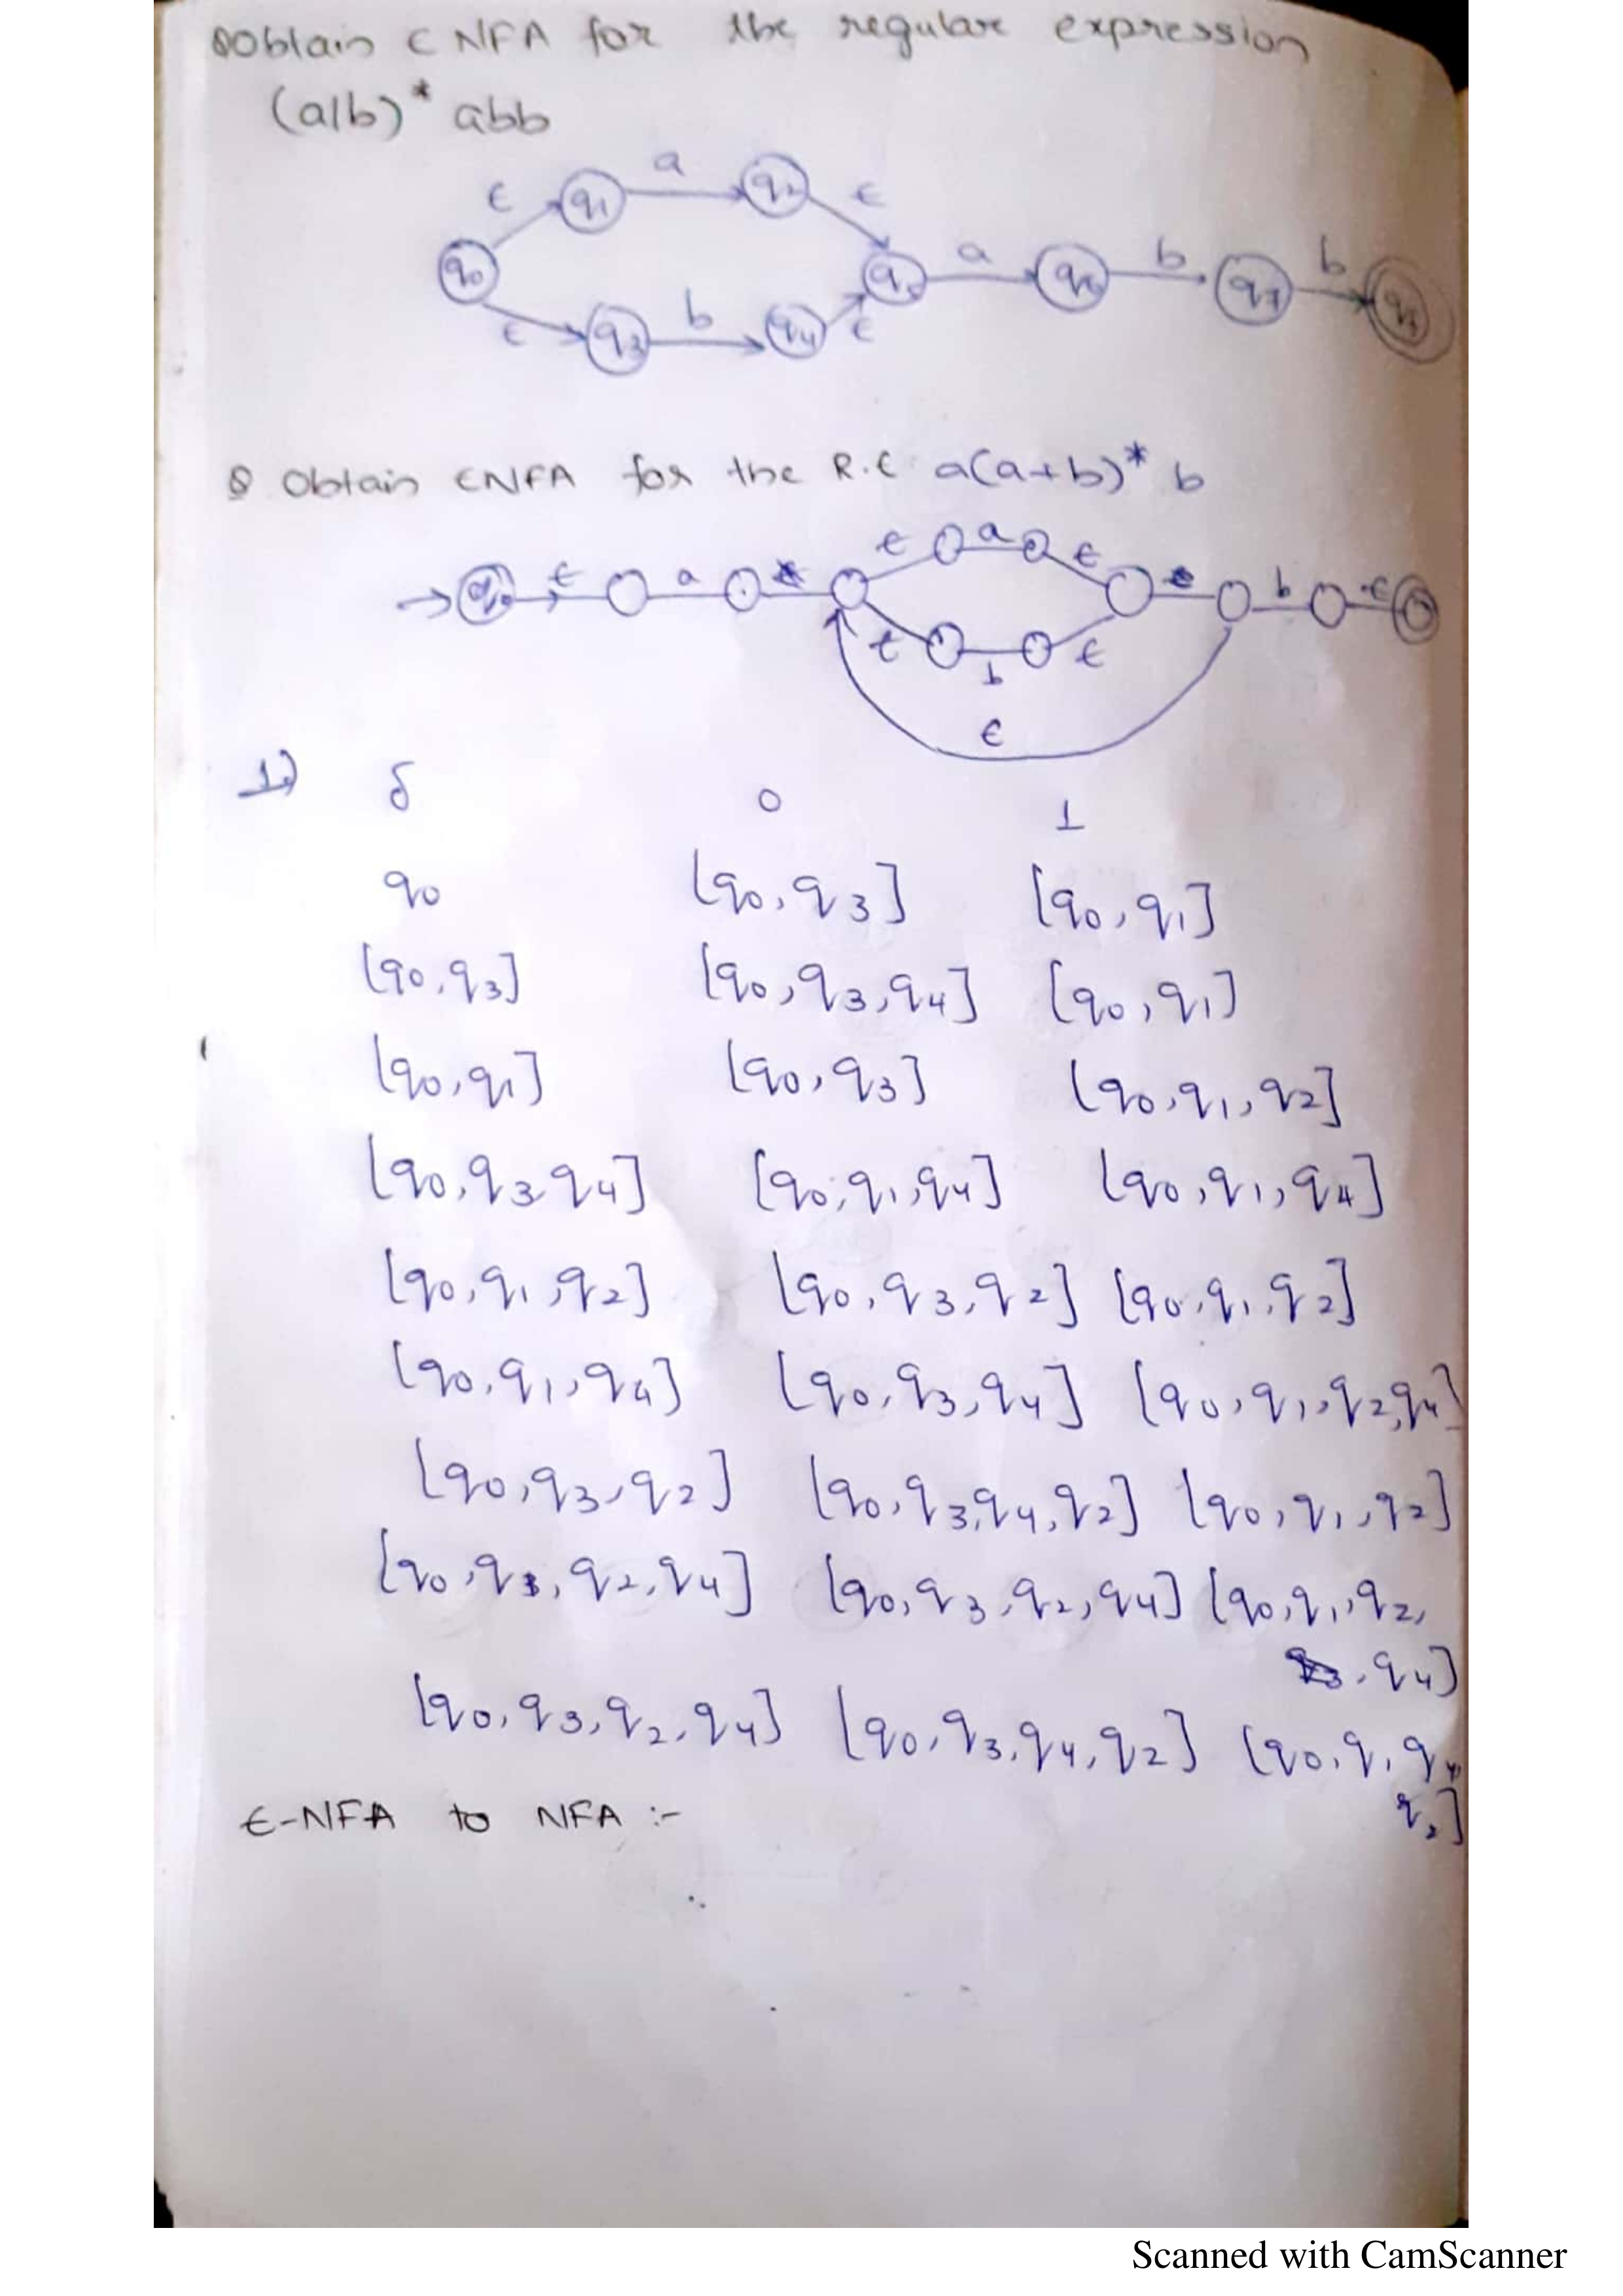 Obtain ϵ NFA for the regular expression
(a/b)* abb
ϵ q1 a q2 ϵ
q0 q5 a q6 b q7 b
ϵ q3 b q4 ϵ
Q Obtain ϵNFA for the R.E a(a+b)* b
ϵ a ϵ
q0 ϵ a b ϵ
ϵ b ϵ
ϵ
1) δ 0 1
q0 [q0, q3] [q0, q1]
[q0, q3] [q0, q3, q4] [q0, q1]
[q0, q1] [q0, q3] [q0, q1, q2]
[q0, q3 q4] [q0, q1, q4] [q0, q1, q4]
[q0, q1, q2] [q0, q3, q2] [q0, q1, q2]
[q0, q1, q4] [q0, q3, q4] [q0, q1, q2, q4]
[q0, q3, q2] [q0, q3, q4, q2] [q0, q1, q2]
[q0, q3, q2, q4] [q0, q3, q2, q4] [q0, q1, q2,
, q4]
[q0, q3, q2, q4] [q0, q3, q4, q2] [q0, q1 q4,
q2]
ϵ-NFA to NFA :-
Scanned with CamScanner